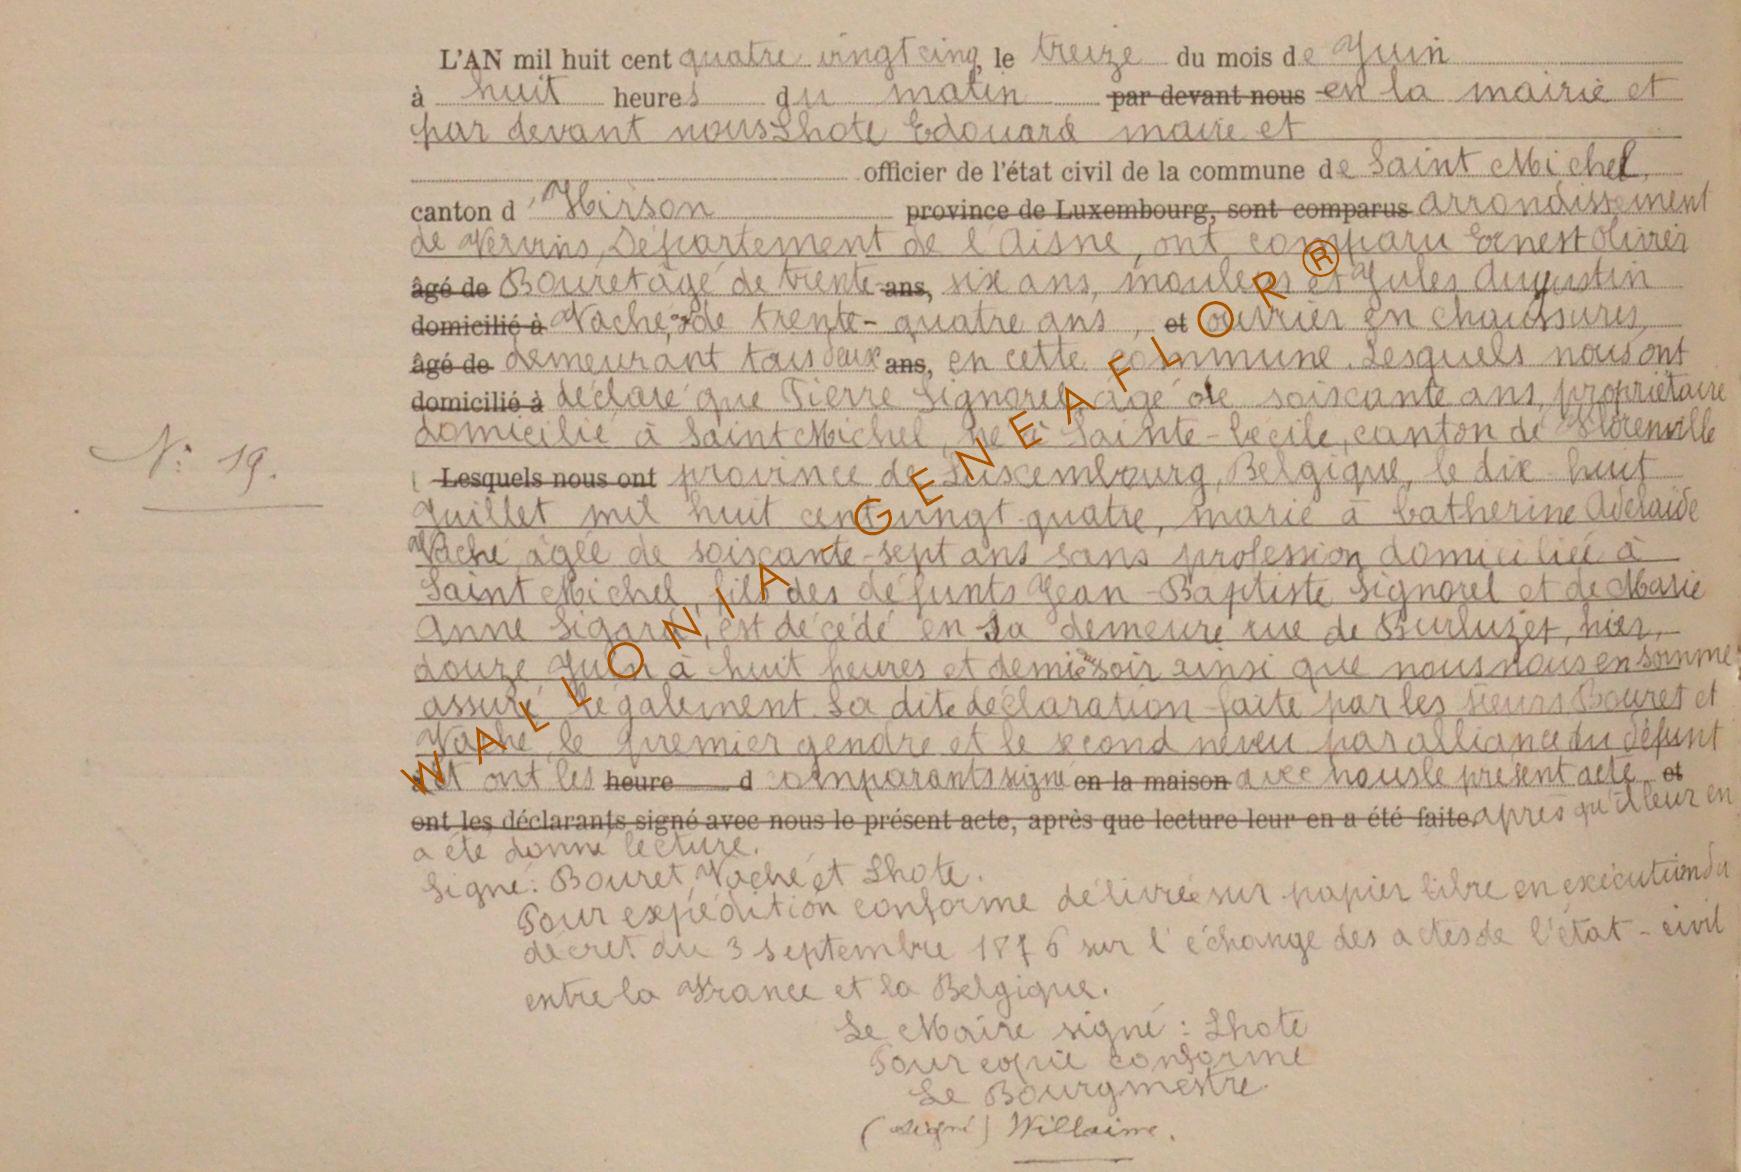 L'AN mil huit cent quatre vingt cinq, le treize du mois de Juin
à huit heures du matin par devant nous en la mairie et
par devant nous Lhote Edouard maire et
officier de l'état civil de la commune de Saint Michel,
canton d'Hirson province de Luxembourg, sont comparus arrondissement
de Vervins, Département de l'Aisne, ont comparu Ernest Olivier
âgé de Bouret âgé de trente-ans, six ans, mouleur et Jules Augustin
domicilié à Vaché, de trente-quatre ans, et ouvrier en chaussures,
âgé de demeurant tous deux ans, en cette commune. Lesquels nous ont
domicilié à déclaré que Pierre Signorel, âgé de soixante ans, propriétaire
domicilié à Saint Michel, né à Sainte-Cécile, canton de Florenville
N° 19.
Lesquels nous ont province de Luxembourg, Belgique, le dix huit
Juillet mil huit cent vingt-quatre, marié à Catherine Adélaïde
Vaché âgée de soixante-sept ans sans profession domiciliée à
Saint Michel, fils des défunts Jean-Baptiste Signorel et de Marie
Anne Sigard, est décédé en sa demeure rue de Burluzet, hier,
douze Juin à huit heures et demie soir ainsi que nous nous en sommes
assuré légalement. La dite déclaration faite par les sieurs Bouret et
Vaché, le premier gendre et le second neveu par alliance du défunt
et ont les heure d comparants signé en la maison avec nous le présent acte, et
ont les déclarants signé avec nous le présent acte, après que lecture leur en a été faite. après qu'il leur en
a été donné lecture.
Signé: Bouret, Vaché et Lhote.
Pour expédition conforme délivrée sur papier libre en exécution du
décret du 3 septembre 1876 sur l'échange des actes de l'état-civil
entre la France et la Belgique.
Le Maire signé: Lhote
Pour copie conforme
Le Bourgmestre
(signé) Willaime.
WALLONIA-GENEAFLOR®